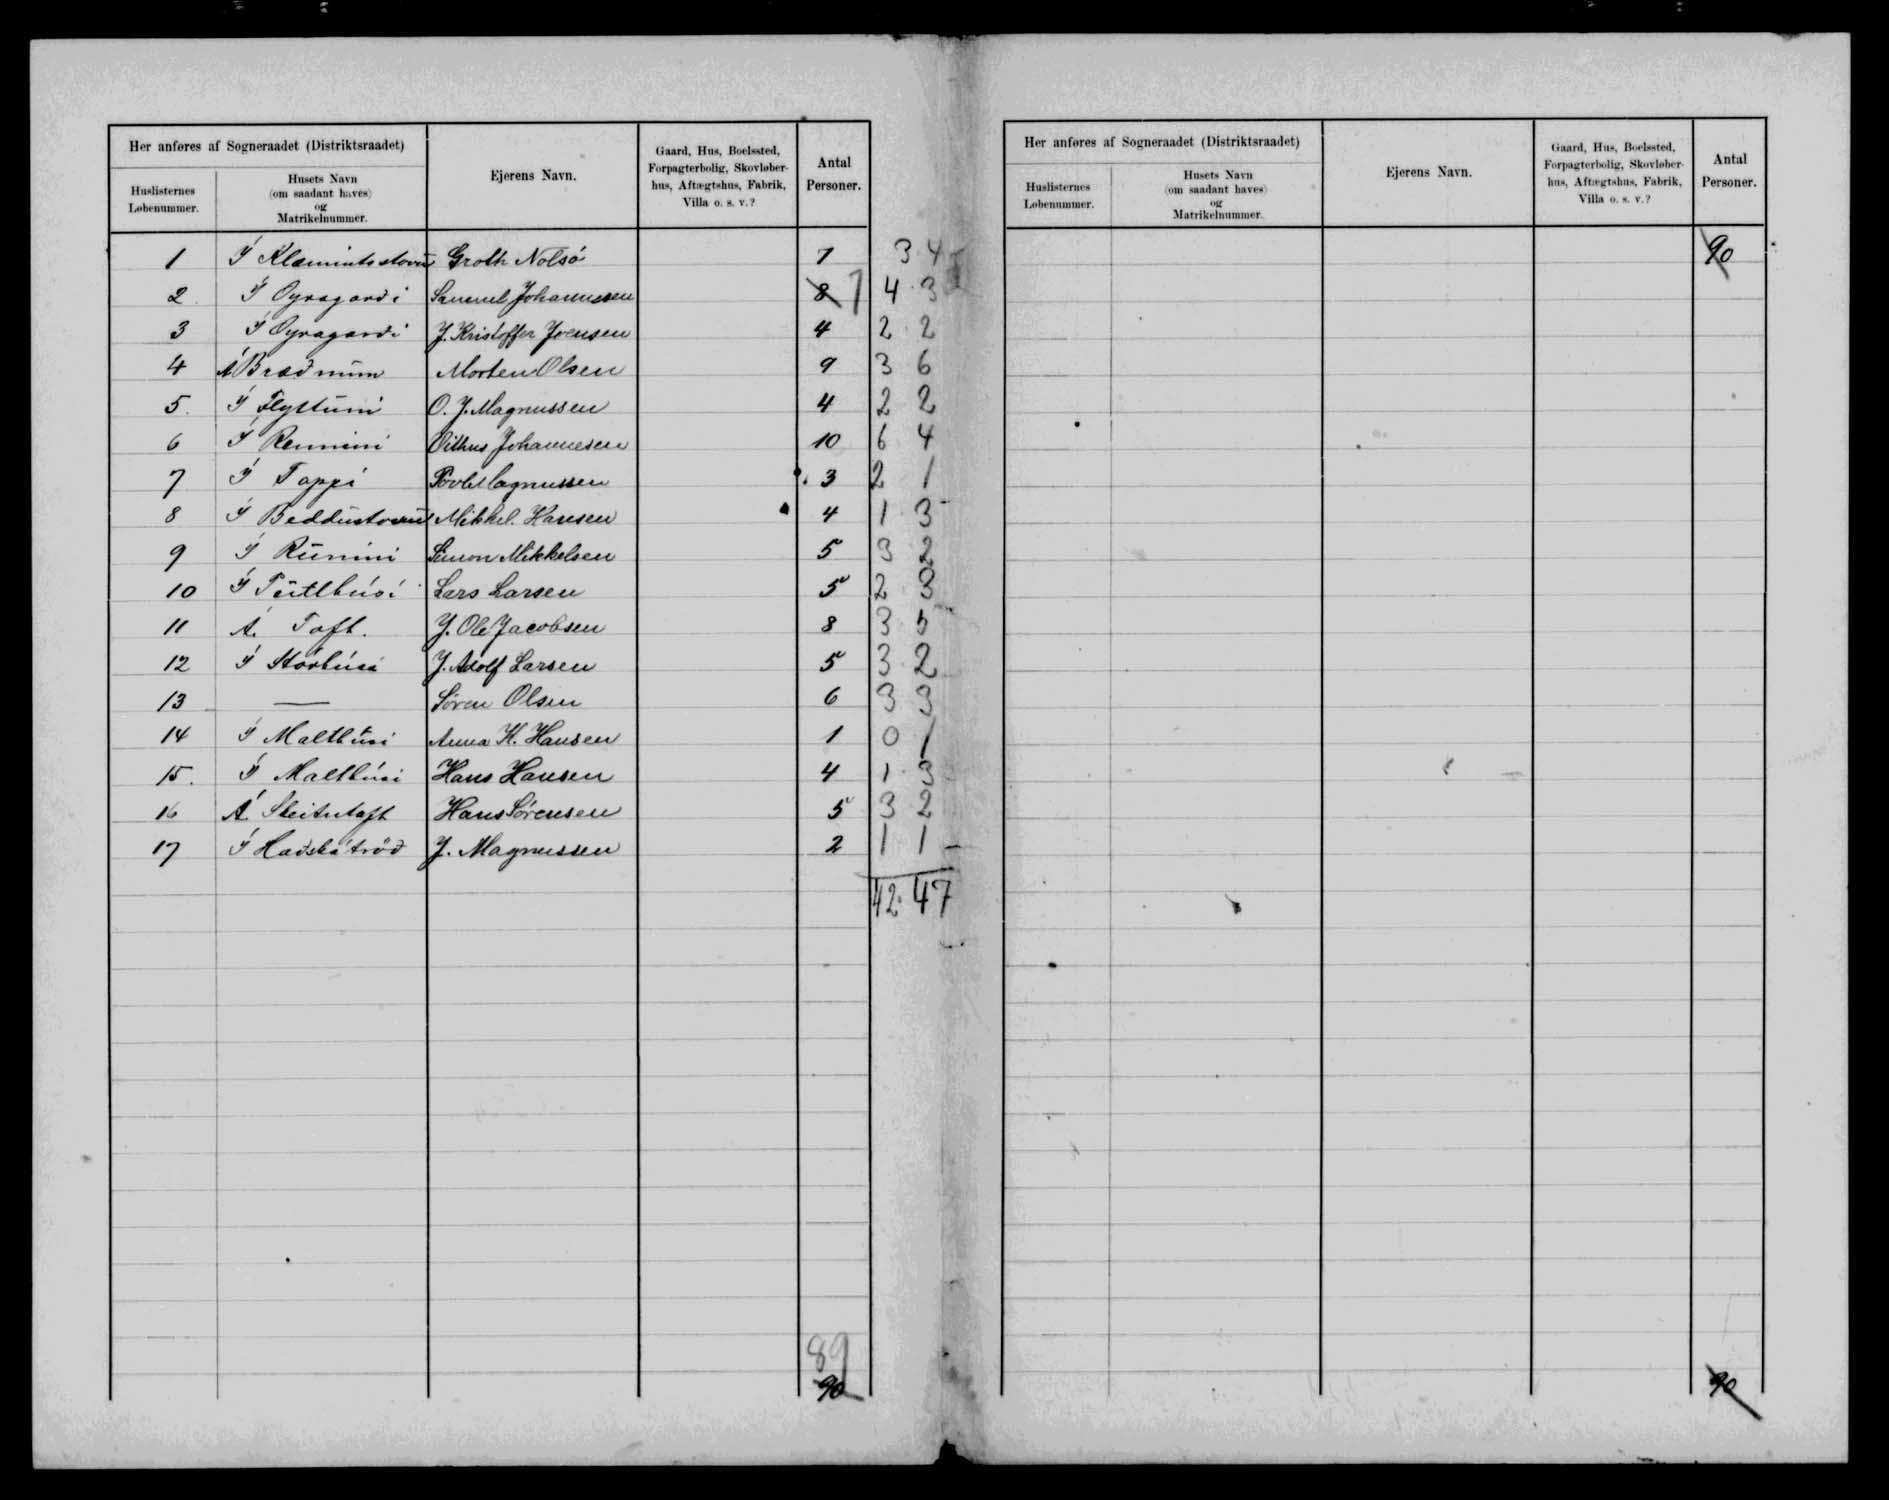 Her anføres af Sogneraadet (Distriktsraadet)
Huslisternes Løbenummer.
Husets Navn (om saadant haves) og Matrikelnummer.
Ejerens Navn.
Gaard, Hus, Boelssted, Forpagterbolig, Skovløberhus, Aftægtshus, Fabrik, Villa o. s. v.?
Antal Personer.
1 Í Klæmintsstovu Groth Nolsö 7 3 4
2 Í Oyragardi Samuel Johannessen 8 7 4 3
3 Í Oyragardi J. Kristoffer Joensen 4 2 2
4 Á Brædnum Morten Olsen 9 3 6
5. Í Flyttuni O. J. Magnussen 4 2 2
6 Í Rennini Johannesen 10 6 4
7 Í Tappi Povl Magnussen 3 2 1
8 Í Beddustovu Mikkel Hansen 4 1 3
9 Í Runini Simon Mikkelsen 5 3 2
10 Í Lars Larsen 5 2 3
11 Á Toft. J. Ole Jacobsen 8 3 5
12 Í Stórhúsi J. Adolf Larsen 5 3 2
13 — Søren Olsen 6 3 3
14 Í Malthúsi Anna K. Hansen 1 0 1
15. Í Malthúsi Hans Hansen 4 1 3
16 Á Hans Sørensen 5 3 2
17 Í J. Magnussen 2 1 1
42. 47
89
90
Her anføres af Sogneraadet (Distriktsraadet)
Huslisternes Løbenummer.
Husets Navn (om saadant haves) og Matrikelnummer.
Ejerens Navn.
Gaard, Hus, Boelssted, Forpagterbolig, Skovløberhus, Aftægtshus, Fabrik, Villa o. s. v.?
Antal Personer.
90
90